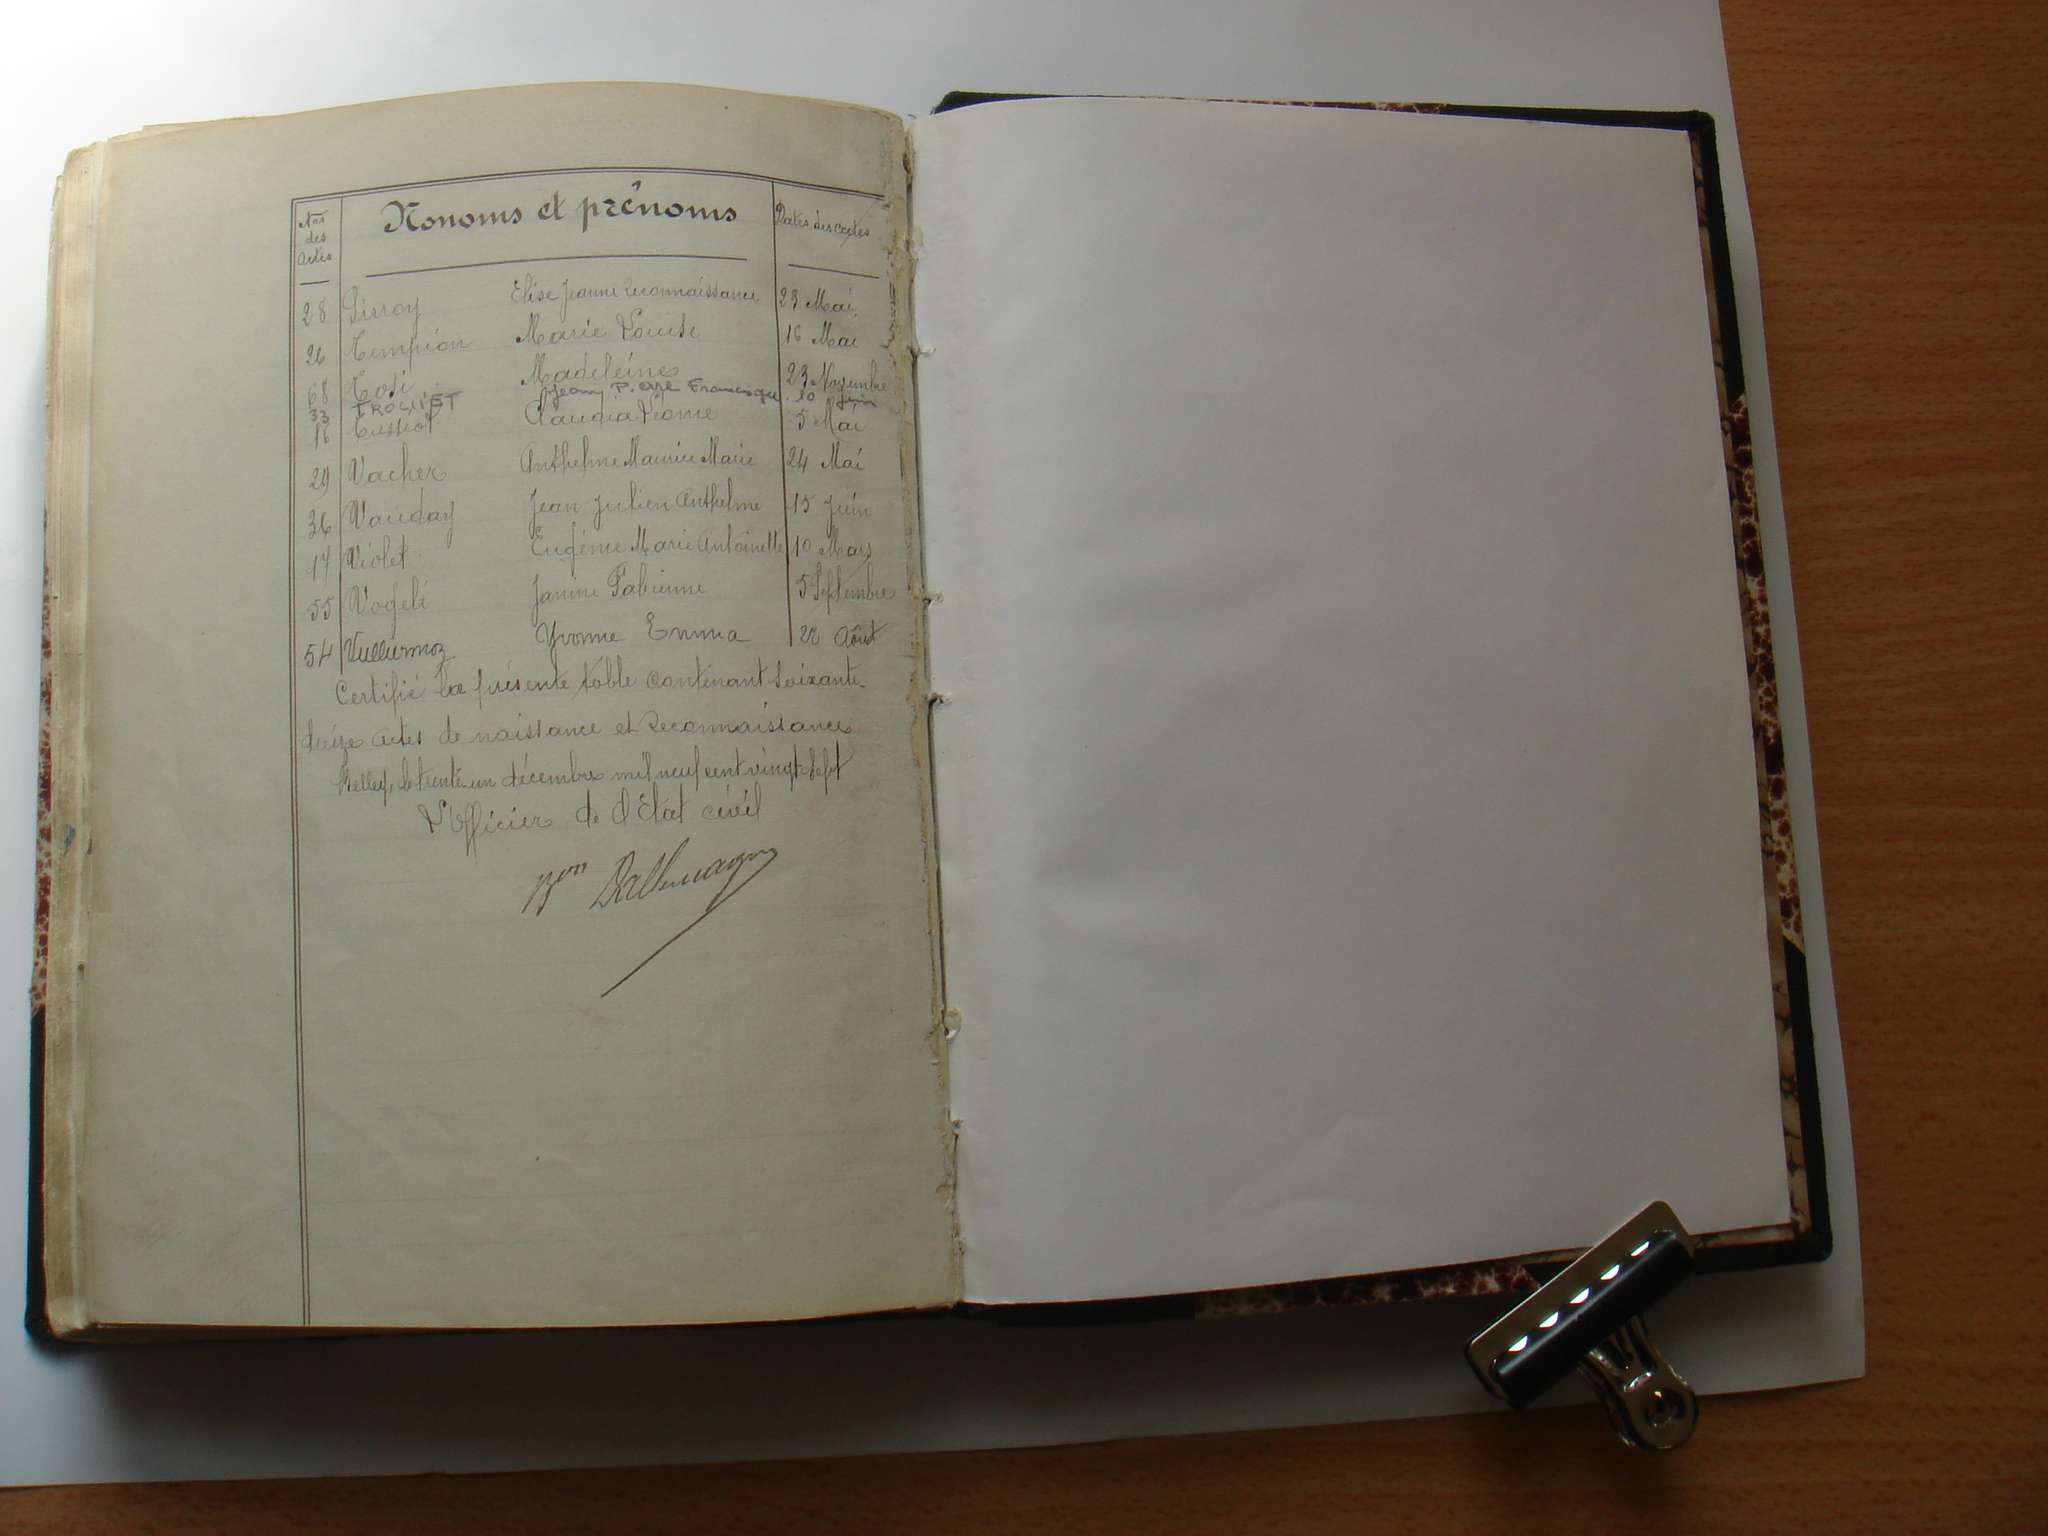 Nos des Actes Nonoms et prénoms Dates des actes
28 Elise Jeanne reconnaissance 23 Mai
26 Tempion Marie Louise 16 Mai
68 Tosi Madeleine 23 Novembre
33 TROLLIET Jean Pierre Francisque 10 Juin
16 Claudia Léonie 5 Mai
29 Vacher Anthelme Maurice Marie 24 Mai
36 Vauday Jean Julien Anthelme 15 Juin
17 Violet Eugénie Marie Antoinette 10 Mars
55 Vogeli Janine Fabienne 5 Septembre
54 Vulliermoz Yvonne Emma 22 Août
Certifié la présente table contenant soixante-
treize actes de naissance et Reconnaissance
Belley, le trente un décembre mil neuf cent vingt sept
L'Officier de l'Etat civil
Bon Dallemagne